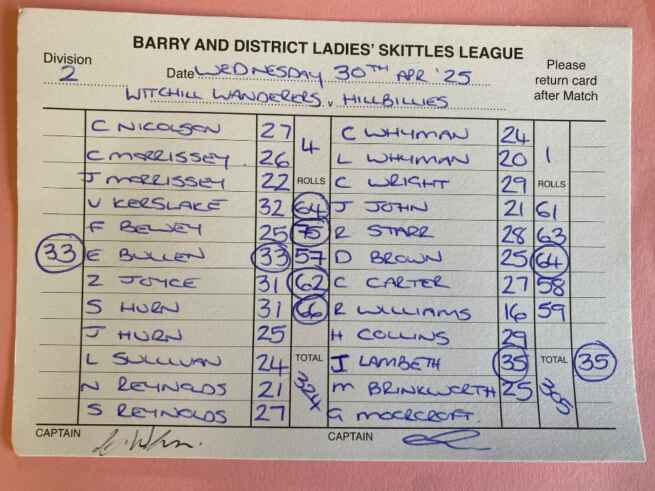 BARRY AND DISTRICT LADIES' SKITTLES LEAGUE
Division 2
Date WEDNESDAY 30TH APR '25
Please return card after Match
WITCHILL WANDERERS v HILLBILLIES
C NICOLSON 27 4 C WHYMAN 24 1
C MORRISSEY 26 L WHYMAN 20
J MORRISSEY 22 ROLLS C WRIGHT 29 ROLLS
V KERSLAKE 32 64 J JOHN 21 61
F BEWEY 25 75 R STARR 28 63
33 E BULLEN 33 57 D BROWN 25 64
Z JOYCE 31 62 C CARTER 27 58
S HURN 31 66 R WILLIAMS 16 59
J HURN 25 H COLLINS 29
L SULLIVAN 24 TOTAL J LAMBETH 35 TOTAL 35
N REYNOLDS 21 324 M BRINKWORTH 25 305
S REYNOLDS 27 G MOORCROFT.
CAPTAIN CAPTAIN